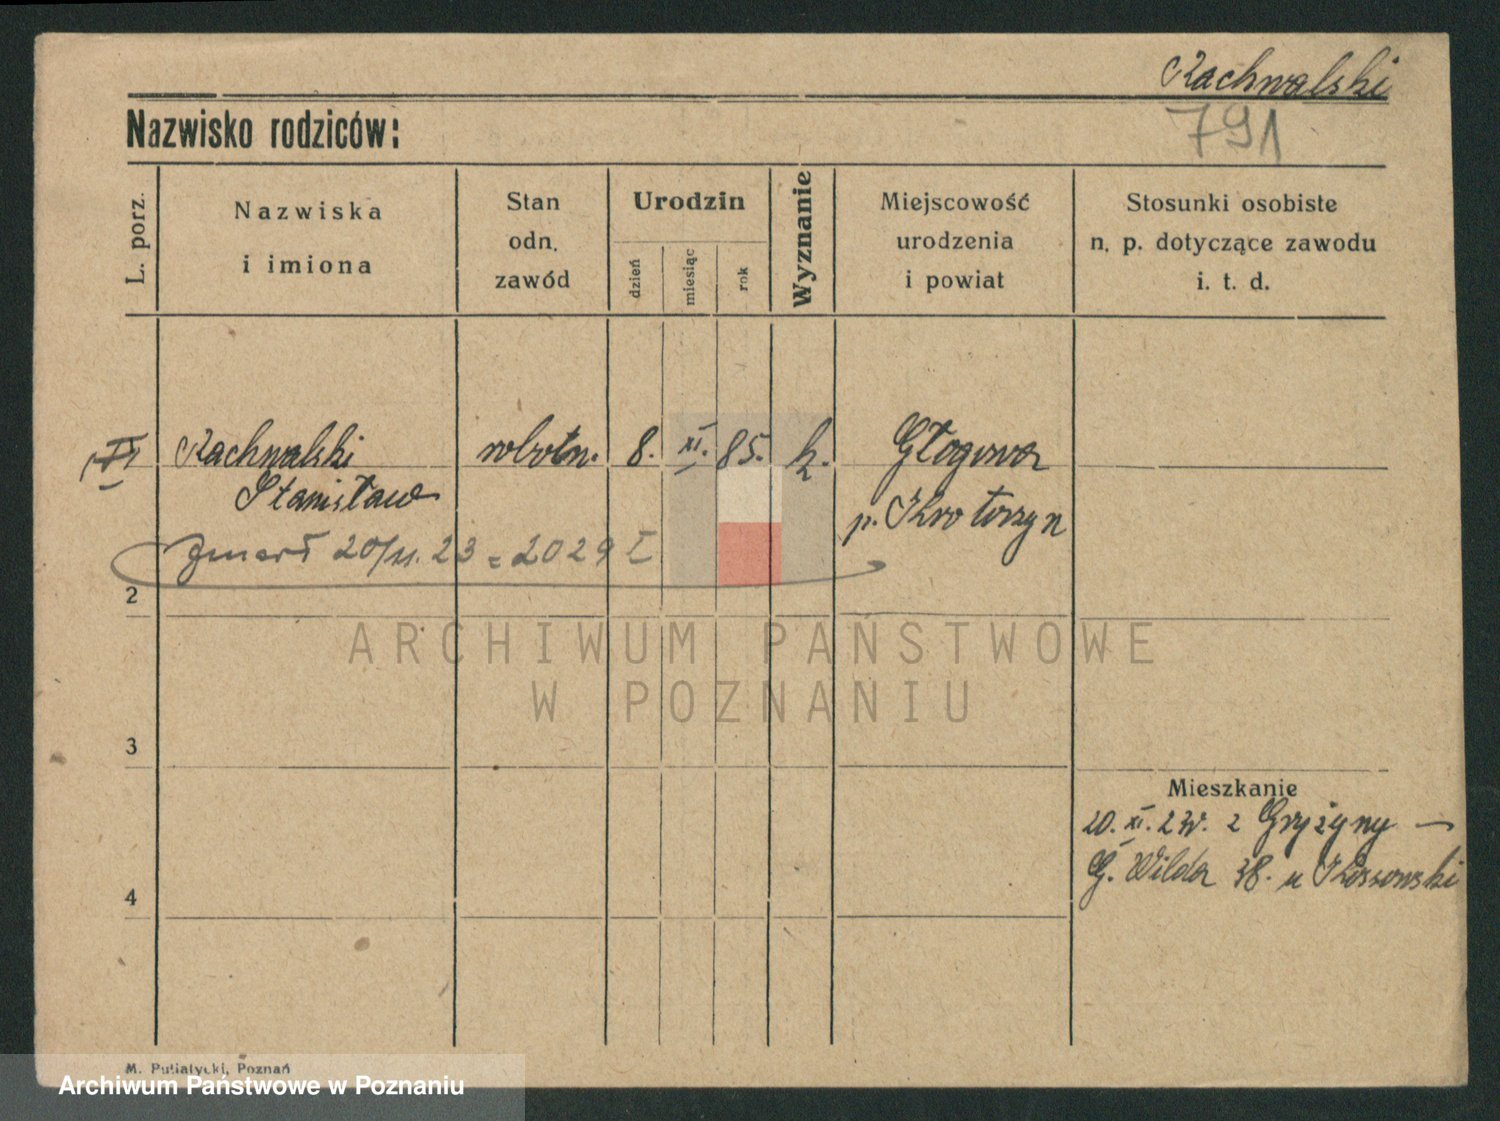 Rachwalski
791
Nazwisko rodziców:
L. porz.
Nazwiska
i imiona
Stan
odn.
zawód
Urodzin
dzień
miesiąc
rok
Wyznanie
Miejscowość
urodzenia
i powiat
Stosunki osobiste
n. p. dotyczące zawodu
i. t. d.
Rachwalski robotn. 8. XI. 85. k. Głogowa
Stanisław p. Krotoszyn
Zmarł 20/11. 23 = 2029
2
ARCHIWUM PAŃSTWOWE
W POZNANIU
3
Mieszkanie
20. XI. 23r. z Gryżyny —
G. Wilda 38. u Kossowski
4
M. Putiatycki, Poznań
Archiwum Państwowe w Poznaniu